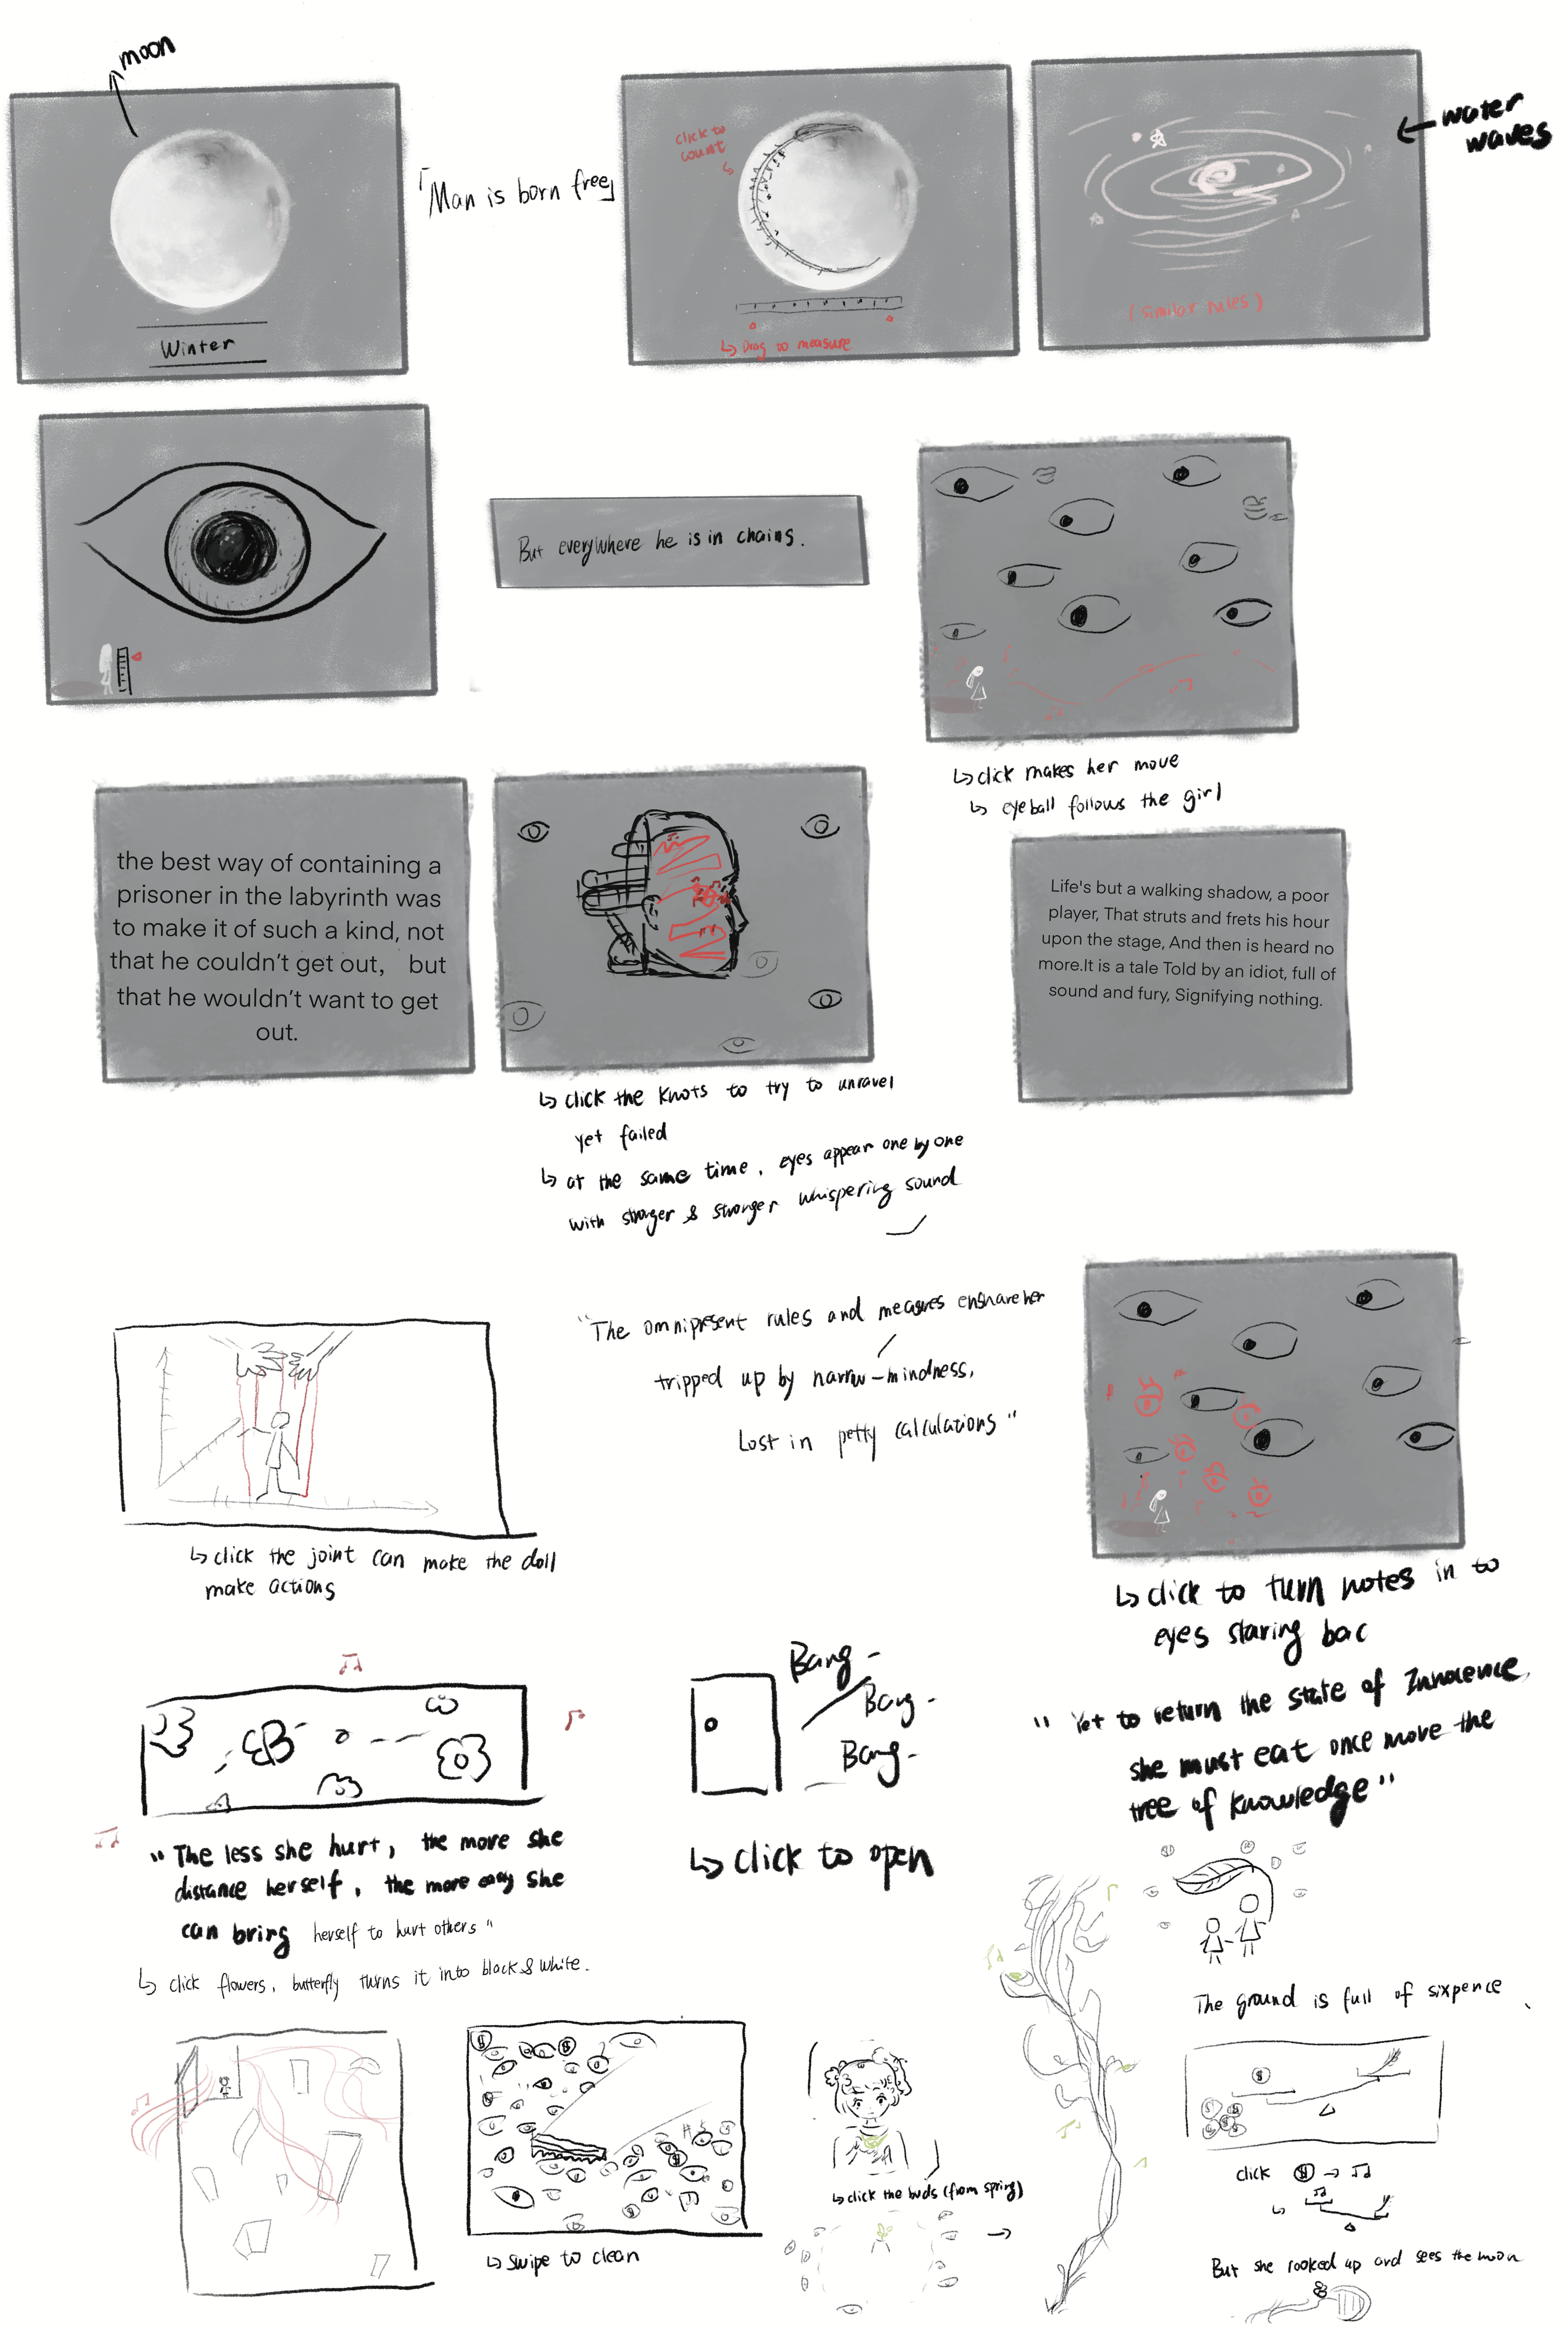 moon
Winter
「Man is born free」
click to
count
Drag to measure
water
waves
(similar rules)
But everywhere he is in chains.
click makes her move
eyeball follows the girl
the best way of containing a
prisoner in the labyrinth was
to make it of such a kind, not
that he couldn't get out, but
that he wouldn't want to get
out.
click the knots to try to unravel
yet failed
at the same time, eyes appear one by one
with stronger & stronger whispering sound
Life's but a walking shadow, a poor
player, That struts and frets his hour
upon the stage, And then is heard no
more.It is a tale Told by an idiot, full of
sound and fury, Signifying nothing.
click the joint can make the doll
make actions
"The omnipresent rules and measures ensnare her
tripped up by narrow-mindness,
Lost in petty calculations"
click to turn notes in to
eyes staring bac
"The less she hurt, the more she
distance herself, the more easy she
can bring herself to hurt others"
click flowers, butterfly turns it into black & white.
Bang-
Bang-
Bang-
click to open
"Yet to return the state of Innocence,
she must eat once more the
tree of knowledge"
swipe to clean
click the buds (from spring)
The ground is full of sixpence
click $ → ♫
But she looked up and sees the moon